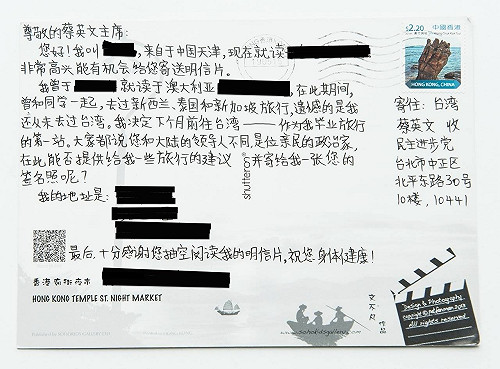 尊敬的蔡英文主席:
您好!我叫 ,来自于中国天津,现在就读
非常高兴能有机会给您寄送明信片。
我曾于 就读于澳大利亚 ,在此期间,
曾和同学一起,去过新西兰、泰国和新加坡旅行,遗憾的是我
还从未去过台湾。我决定下个月前往台湾——作为我毕业旅行
的第一站。大家都说您和大陆的领导人不同,是位亲民的政治家,
在此能否提供给我一些旅行的建议,并寄给我一张您的
签名照呢?
我的地址是:
最后,十分感谢您抽空阅读我的明信片,祝您身体健康!
$2.20 中國香港
HONG KONG, CHINA
寄往:台湾
蔡英文 收
民主进步党
台北市中正区
北平东路30号
10楼, 10441
香港廟街夜市
HONG KONG TEMPLE ST. NIGHT MARKET
Design & Photography
All rights reserved
作品